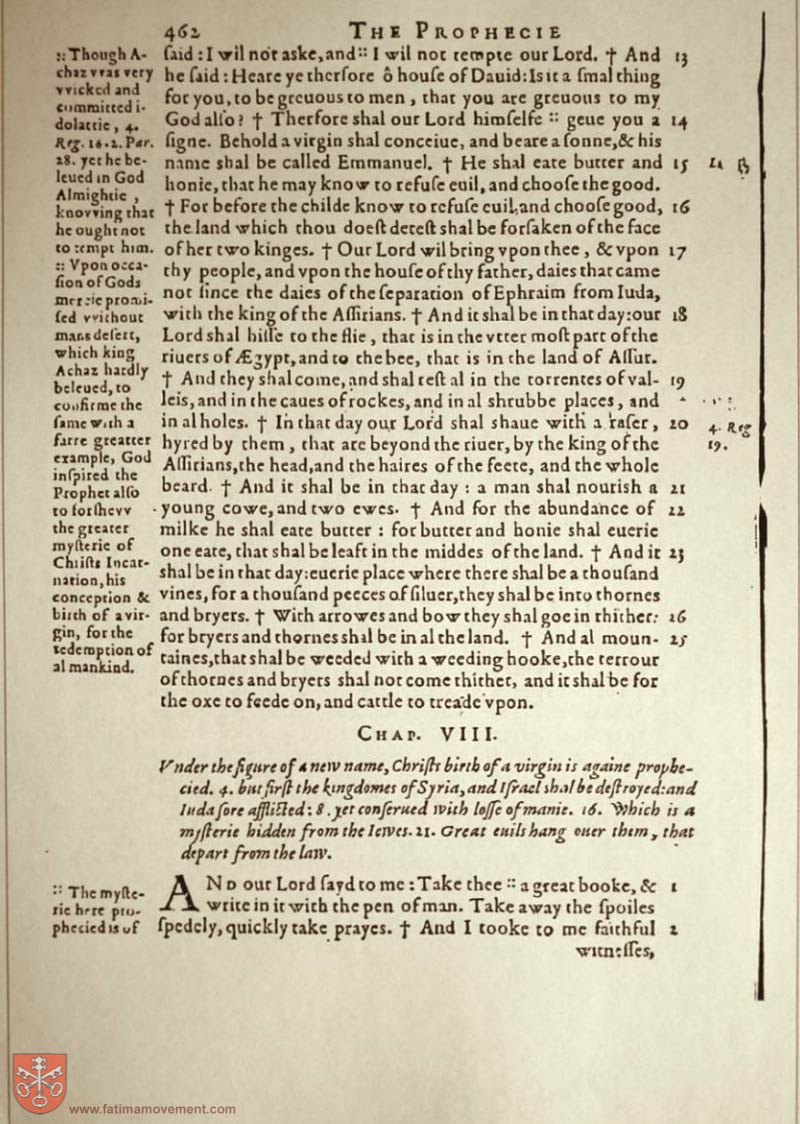 462 THE PROPHECIE
ſaid: I wil not aske, and :: I wil not tempte our Lord. † And 13
he ſaid: Heare ye therfore ô houſe of Dauid: Is it a ſmal thing
for you, to be greuous to men, that you are greuous to my
God alſo? † Therfore shal our Lord himſelfe :: geue you a 14
ſigne. Behold a virgin shal conceiue, and beare a ſonne, & his
name shal be called Emmanuel. † He shal eate butter and 15
honie, that he may know to refuſe euil, and chooſe the good.
† For before the childe know to refuſe euil, and chooſe good, 16
the land which thou doeſt deteſt shal be forſaken of the face
of her two kinges. † Our Lord wil bring vpon thee, & vpon 17
thy people, and vpon the houſe of thy father, daies that came
not ſince the daies of the ſeparation of Ephraim from Iuda,
with the king of the Aſſirians. † And it shal be in that day: our 18
Lord shal hiſſe to the flie, that is in the vtter moſt part of the
riuers of Ægypt, and to the bee, that is in the land of Aſſur.
† And they shal come, and shal reſt al in the torrentes of val- 19
leis, and in the caues of rockes, and in al shrubbe places, and
in al holes. † In that day our Lord shal shaue with a raſer, 20
hyred by them, that are beyond the riuer, by the king of the
Aſſirians, the head, and the haires of the feete, and the whole
beard. † And it shal be in that day: a man shal nourish a 21
young cowe, and two ewes. † And for the abundance of 22
milke he shal eate butter: for butter and honie shal euerie
one eate, that shal be leaft in the middes of the land. † And it 23
shal be in that day: euerie place where there shal be a thouſand
vines, for a thouſand peeces of ſiluer, they shal be into thornes
and bryers. † With arrowes and bow they shal goe in thither: 16
for bryers and thornes shal be in al the land. † And al moun- 25
taines, that shal be weeded with a weeding hooke, the terrour
of thornes and bryers shal not come thither, and it shal be for
the oxe to feede on, and cattle to treade vpon.
:: Though A-
chaz vvas very
vvicked and
committed i-
dolatrie, 4.
Reg. 16. 2. Par.
28. yet he be-
leued in God
Almightie,
knovving that
he ought not
to tempt him.
:: Vpon occa-
ſion of Gods
mercie promi-
ſed vvithout
mans deſert,
which king
Achaz hardly
beleued, to
confirme the
ſame with a
farre greatter
example, God
inſpired the
Prophet alſo
to forſhevv
the greater
myſterie of
Chriſts Incar-
nation, his
conception &
birth of a vir-
gin, for the
redemption of
al mankind.
4. Reg
19.
CHAP. VIII.
Vnder the figure of a new name, Chriſts birth of a virgin is againe prophe-
cied. 4. but firſt the kingdomes of Syria, and Iſrael shal be deſtroyed: and
Iuda ſore afflicted: 8. yet conſerued with loſſe of manie. 16. Which is a
myſterie hidden from the Iewes. 21. Great euils hang ouer them, that
depart from the law.
AND our Lord ſayd to me: Take thee :: a great booke, & 1
write in it with the pen of man. Take away the ſpoiles
ſpedely, quickly take prayes. † And I tooke to me faithful 2
witneſſes,
:: The myſte-
rie here pro-
phecied is of
www.fatimamovement.com